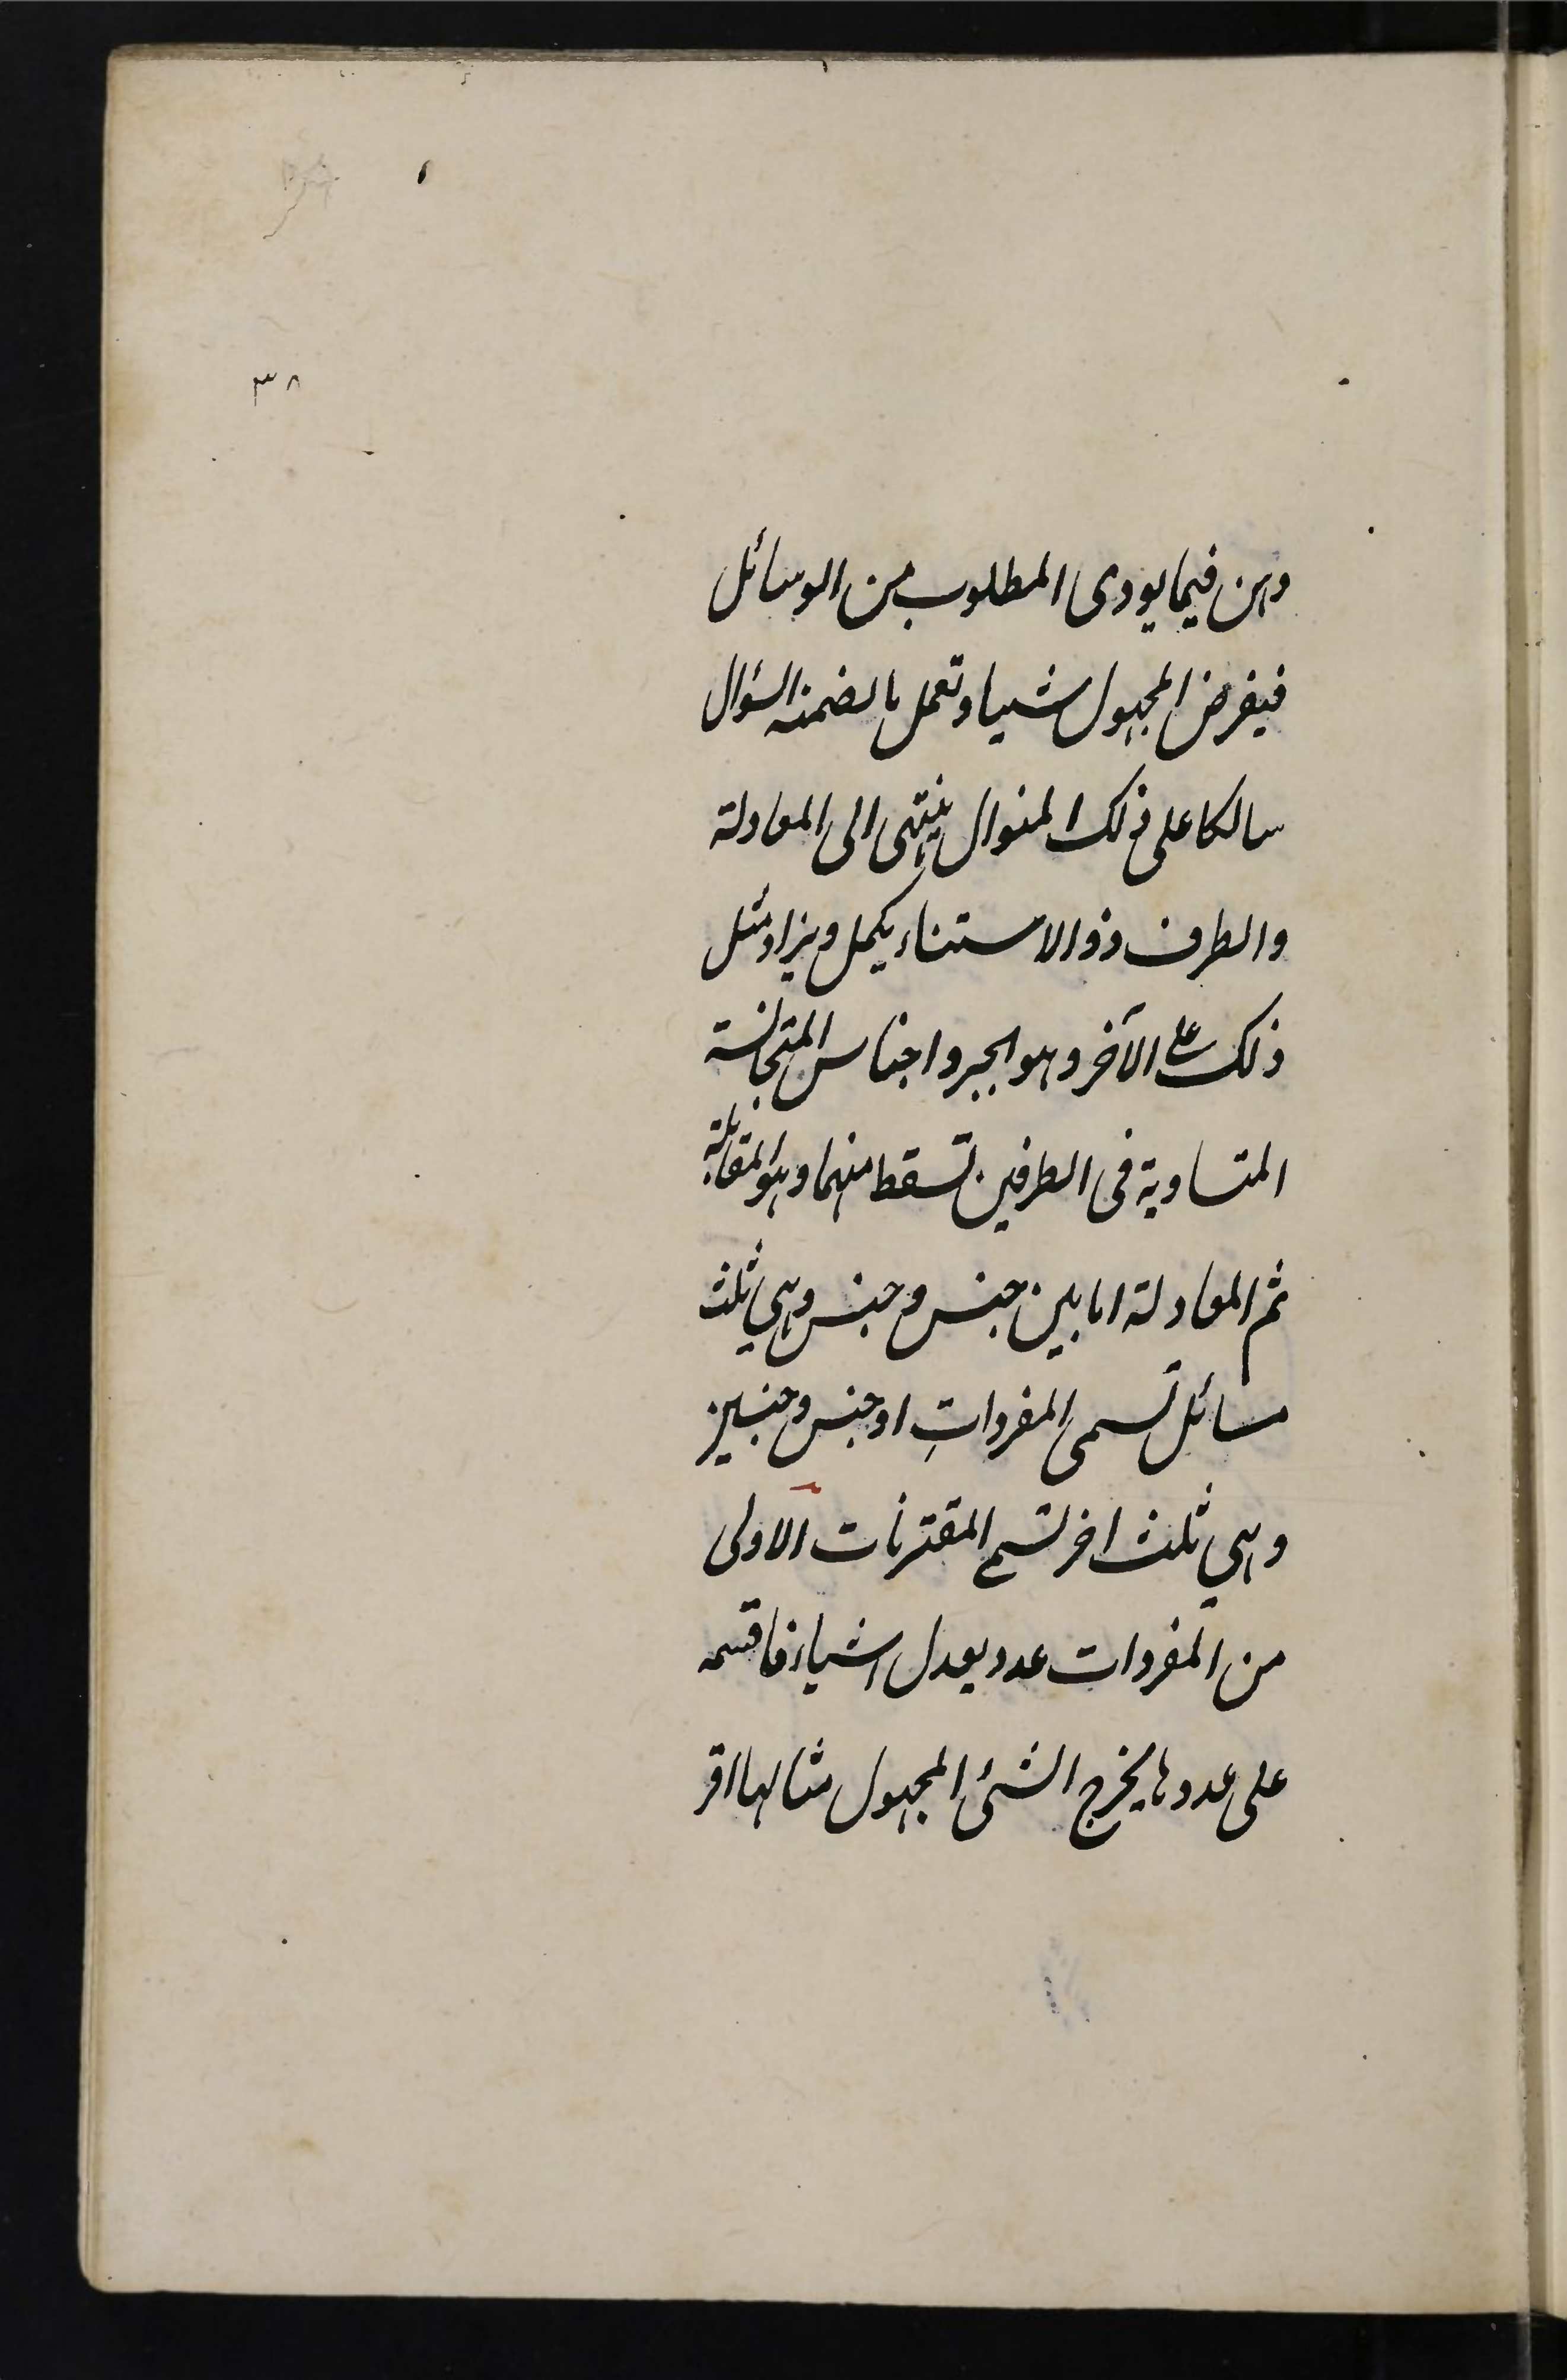 ٣٨
وهن فيما يودى المطلوب من الوسائل
فيفرض المجهول شيا وتعمل بالضمنه السؤال
سالكا على ذلك المنوال ينتهى الى المعادلة
والطرف ذو الاستثناء يكمل ويزاد مثل
ذلك على الآخر وهو الجبر واجناس المتجانسة
المتساوية فى الطرفين تسقط منهما وهو المقابلة
ثم المعادلة اما بين جنس وجنس وهى ثلث
مسائل تسمى المفردات او جنس وجنسين
وهى ثلث اخر تسمى المقترنات الاولى
من المفردات عدد يعدل اشياء فاقسمه
على عددها يخرج الشئ المجهول مثالها اقر